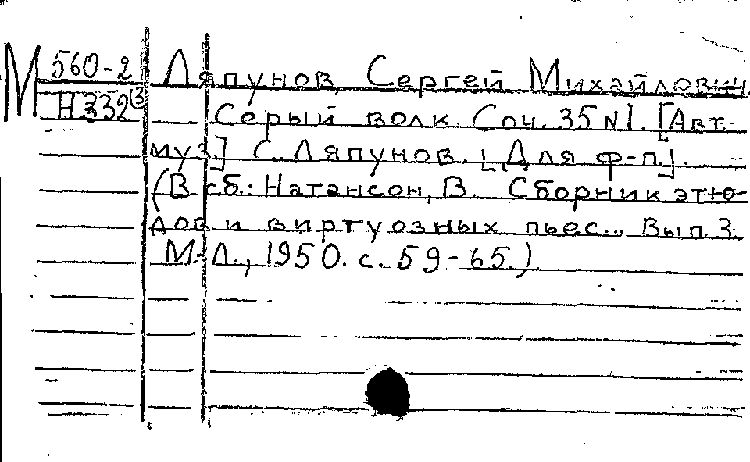 М 560-2 Ляпунов, Сергей Михайлович.
Н332(3 Серый волк. Соч. 35 №1. [Авт.
муз.] С. Ляпунов. [Для ф-п.].
(В сб.: Натансон, В. Сборник этю-
дов и виртуозных пьес... Вып. 3.
М.-Л., 1950. с. 59-65.)